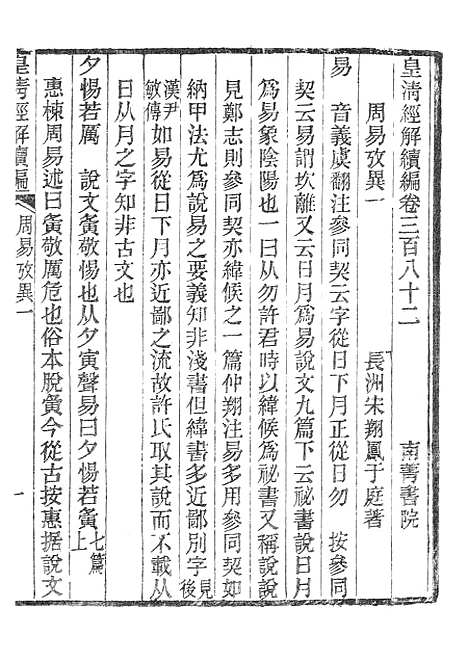 皇清經解續編卷三百八十二　南菁書院
周易攷異一　長洲宋翔鳳于庭著
易　音義虞翻注參同契云字從日下月正從日勿　按參同
契云易謂坎離又云日月爲易說文九篇下云祕書說日月
爲易象陰陽也一曰从勿許君時以緯候爲祕書又稱說說
見鄭志則參同契亦緯候之一篇仲翔注易多用參同契如
納甲法尤爲說易之要義知非淺書但緯書多近鄙別字見後
漢尹敏傳如易從日下月亦近鄙之流故許氏取其說而不載从
日从月之字知非古文也
夕惕若厲　說文夤敬惕也从夕寅聲易曰夕惕若夤七篇上
惠棟周易述曰夤敬厲危也俗本脫夤今從古按惠据說文
皇清經解續編　周易攷異一　一